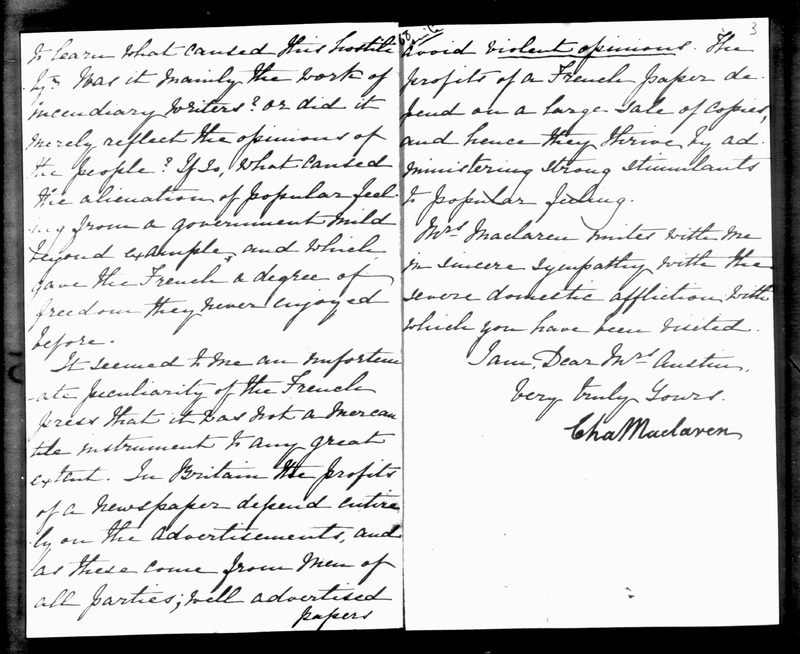 to learn what caused this hostili
ty? Was it mainly the work of
incendiary writers? or did it
merely reflect the opinions of
the people? If so, what caused
the alienation of popular feel-
ing from a government mild
beyond example, and which
gave the French a degree of
freedom they never enjoyed
before.
It seemed to me an unfortun
ate peculiarity of the French
press that it was not a mercan
tile instrument to any great
extent. In Britain the profits
of a newspaper depend entire
ly on the advertisements, and
as these come from men of
all parties, well advertised
papers
3
avoid violent opinions. The
profits of a French paper de-
pend on a large sale of copies,
and hence they thrive by ad-
ministering strong stimulants
to popular feeling.
Mrs Maclaren unites with me
in sincere sympathy with the
severe domestic affliction with
which you have been visited.
I am, Dear Mrs Austin,
Very truly Yours.
Cha Maclaren